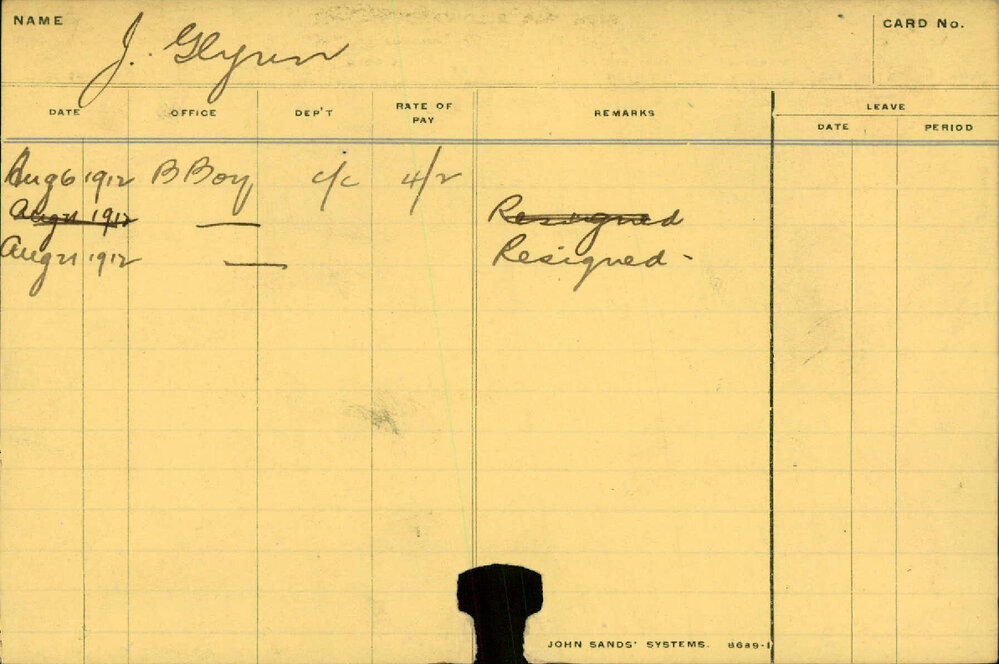 NAME J. Glynn CARD No.
LEAVE
DATE OFFICE DEP'T RATE OF PAY REMARKS DATE PERIOD
Aug 6 1912 B Boy c/c 4/2
Aug 21 1912 — Resigned
Aug 21 1912 — Resigned -
JOHN SANDS' SYSTEMS. 8689-1